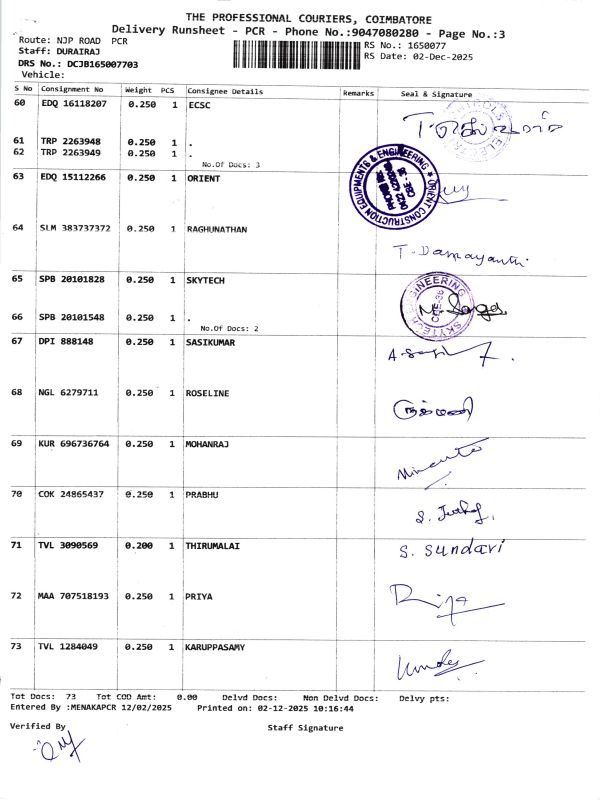 THE PROFESSIONAL COURIERS, COIMBATORE
Delivery Runsheet - PCR - Phone No.:9047080280 - Page No.:3
Route: NJP ROAD PCR
RS No.: 1650077
Staff: DURAIRAJ
RS Date: 02-Dec-2025
DRS No.: DCJB165007703
Vehicle:
S No Consignment No Weight PCS Consignee Details Remarks Seal & Signature
60 EDQ 16118207 0.250 1 ECSC
61 TRP 2263948 0.250 1 .
62 TRP 2263949 0.250 1 .
No.Of Docs: 3
63 EDQ 15112266 0.250 1 ORIENT
ORIENT CONSTRUCTION EQUIPMENTS & ENGINEERING
CBE - 36
64 SLM 383737372 0.250 1 RAGHUNATHAN
T. Damayanthi
65 SPB 20101828 0.250 1 SKYTECH
SKYTECH ENGINEERING
CBE-36
66 SPB 20101548 0.250 1 .
No.Of Docs: 2
67 DPI 888148 0.250 1 SASIKUMAR
68 NGL 6279711 0.250 1 ROSELINE
69 KUR 696736764 0.250 1 MOHANRAJ
70 COK 24865437 0.250 1 PRABHU
71 TVL 3090569 0.200 1 THIRUMALAI
S. Sundari
72 MAA 707518193 0.250 1 PRIYA
73 TVL 1284049 0.250 1 KARUPPASAMY
Tot Docs: 73 Tot COD Amt: 0.00 Delvd Docs: Non Delvd Docs: Delvy pts:
Entered By :MENAKAPCR 12/02/2025 Printed on: 02-12-2025 10:16:44
Verified By
Staff Signature